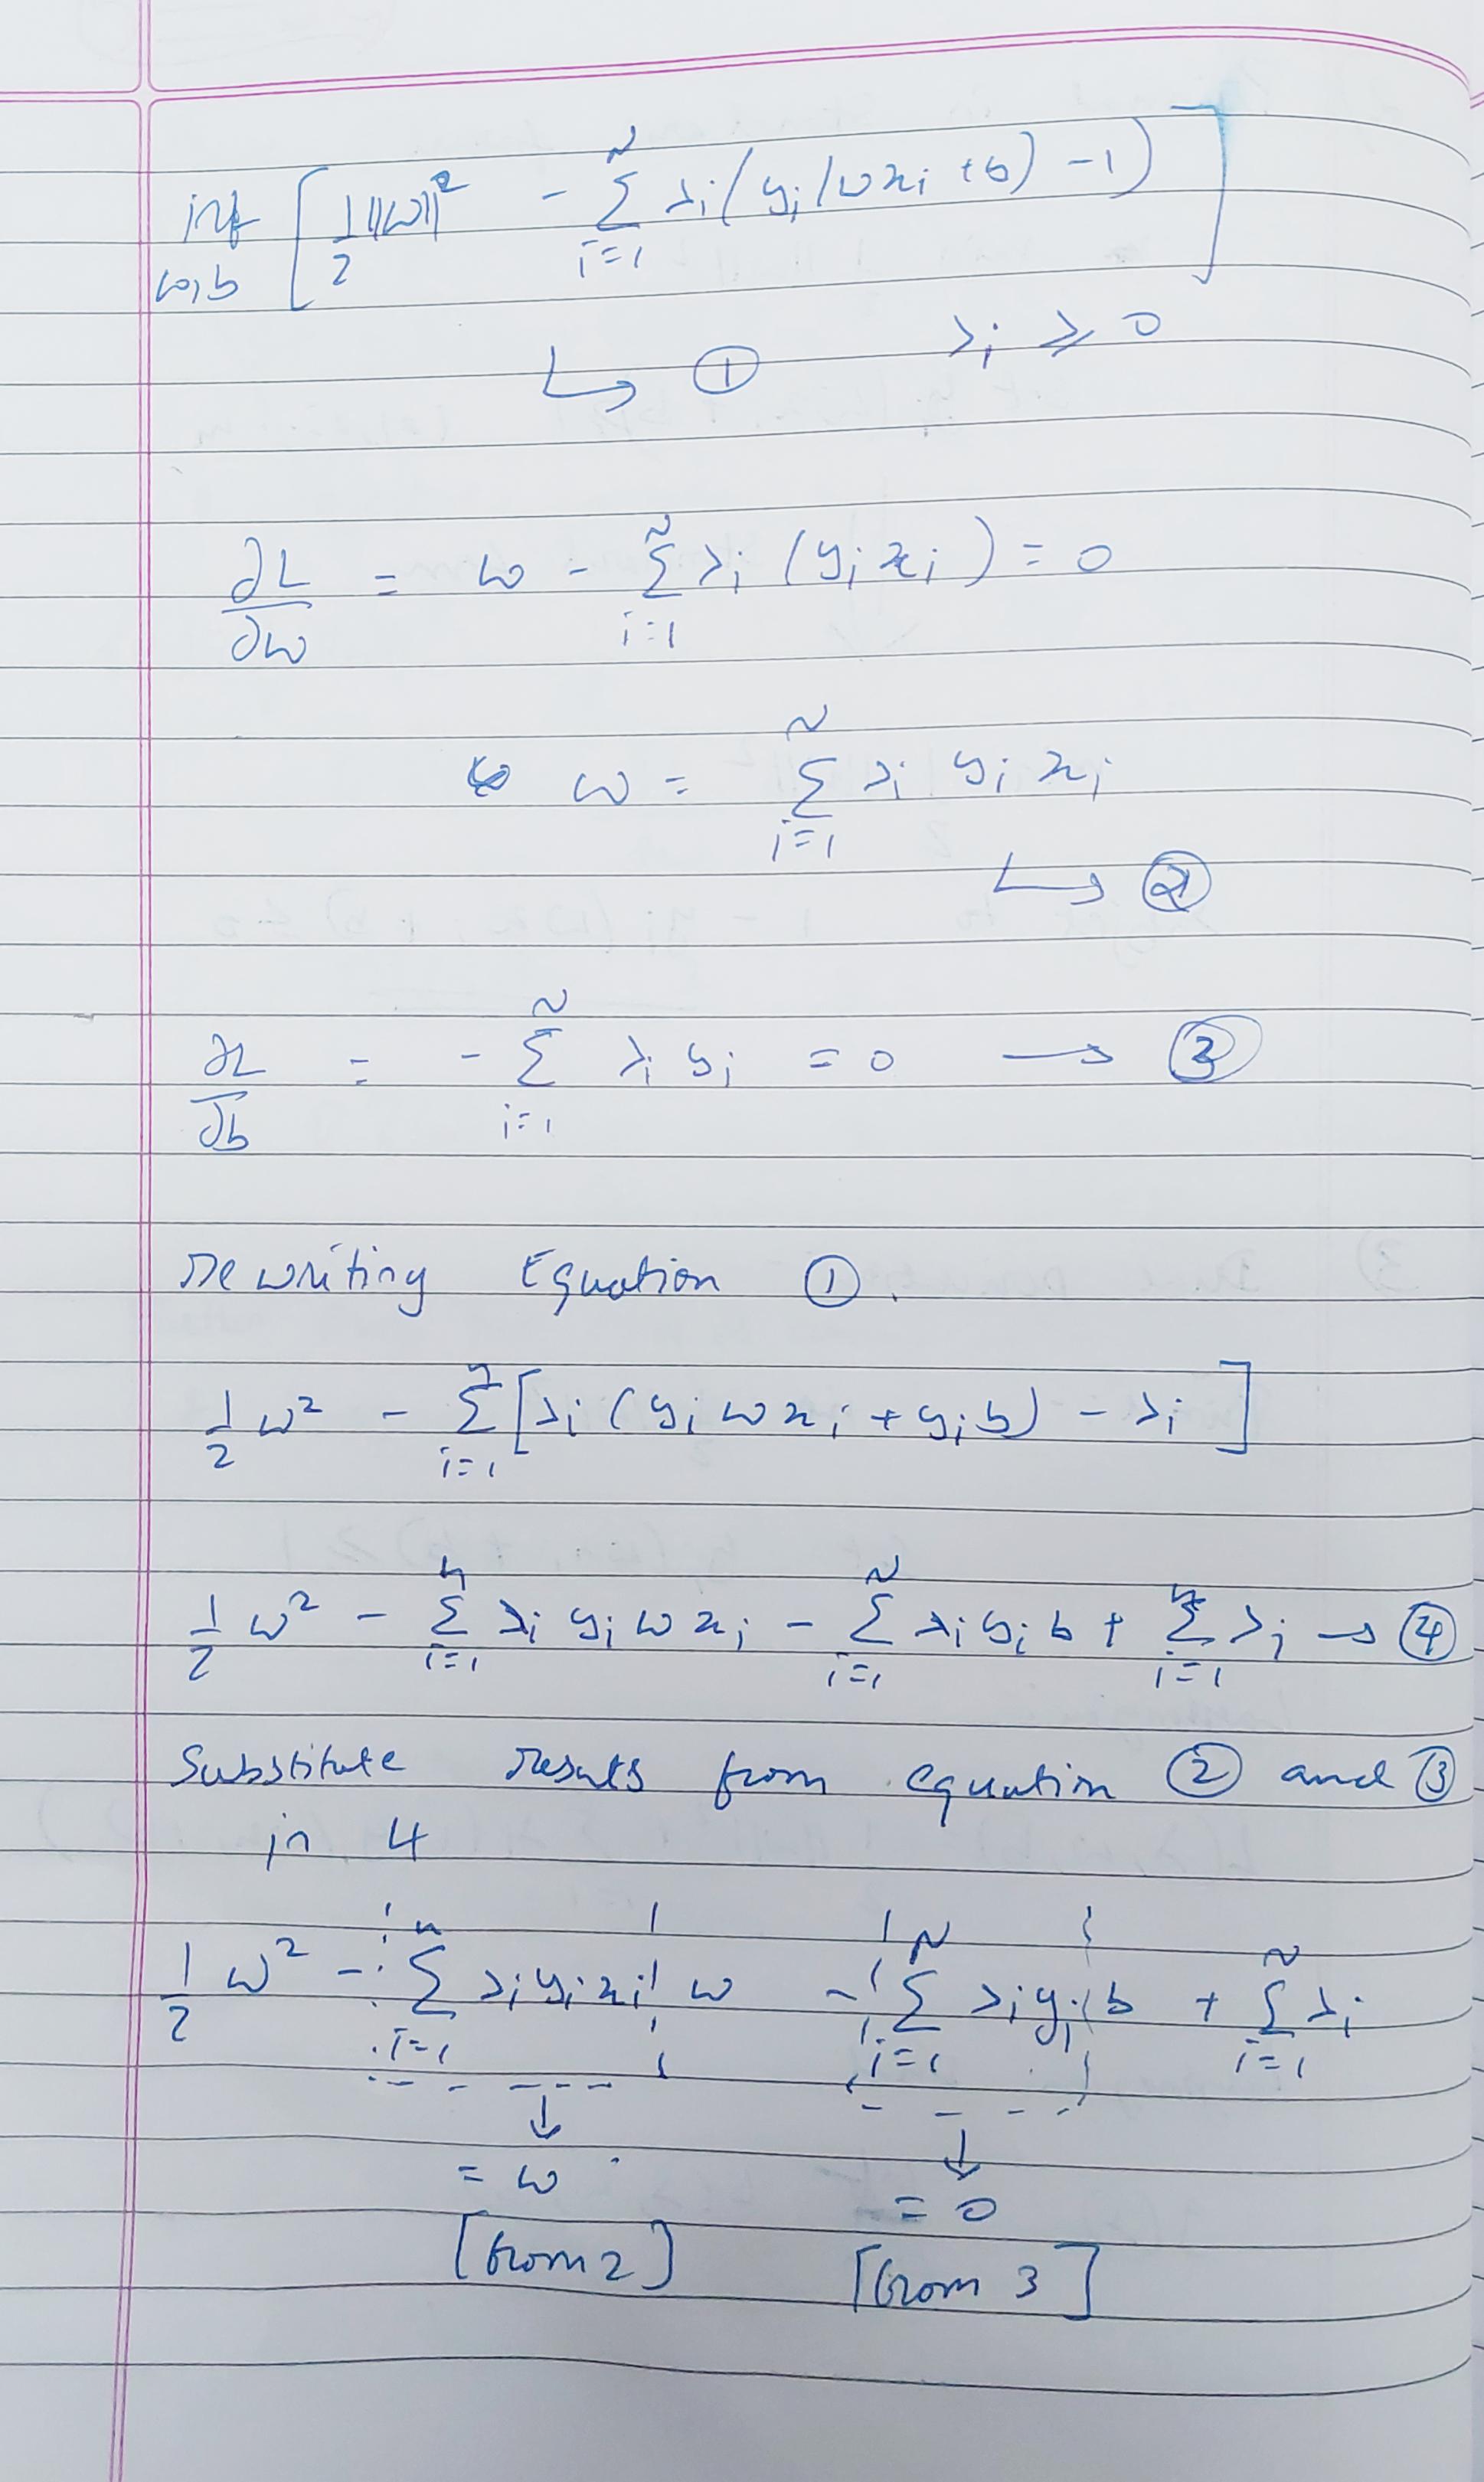 inf w,b [ 1/2 ||w||² - Σ_{i=1}^{N} λi ( yi (w xi + b) - 1 ) ]
↳ ① λi ≥ 0
∂L/∂w = w - Σ_{i=1}^{N} λi (yi xi) = 0
w = Σ_{i=1}^{N} λi yi xi
↳ ②
∂L/∂b = - Σ_{i=1}^{N} λi yi = 0 → ③
Rewriting Equation ①.
1/2 w² - Σ_{i=1}^{n} [ λi ( yi w xi + yi b ) - λi ]
1/2 w² - Σ_{i=1}^{n} λi yi w xi - Σ_{i=1}^{N} λi yi b + Σ_{i=1}^{n} λi → ④
Substitute results from equation ② and ③
in 4
1/2 w² - Σ_{i=1}^{n} λi yi xi w - Σ_{i=1}^{N} λi yi b + Σ_{i=1}^{N} λi
↓ ↓
= w = 0
[from 2] [from 3]